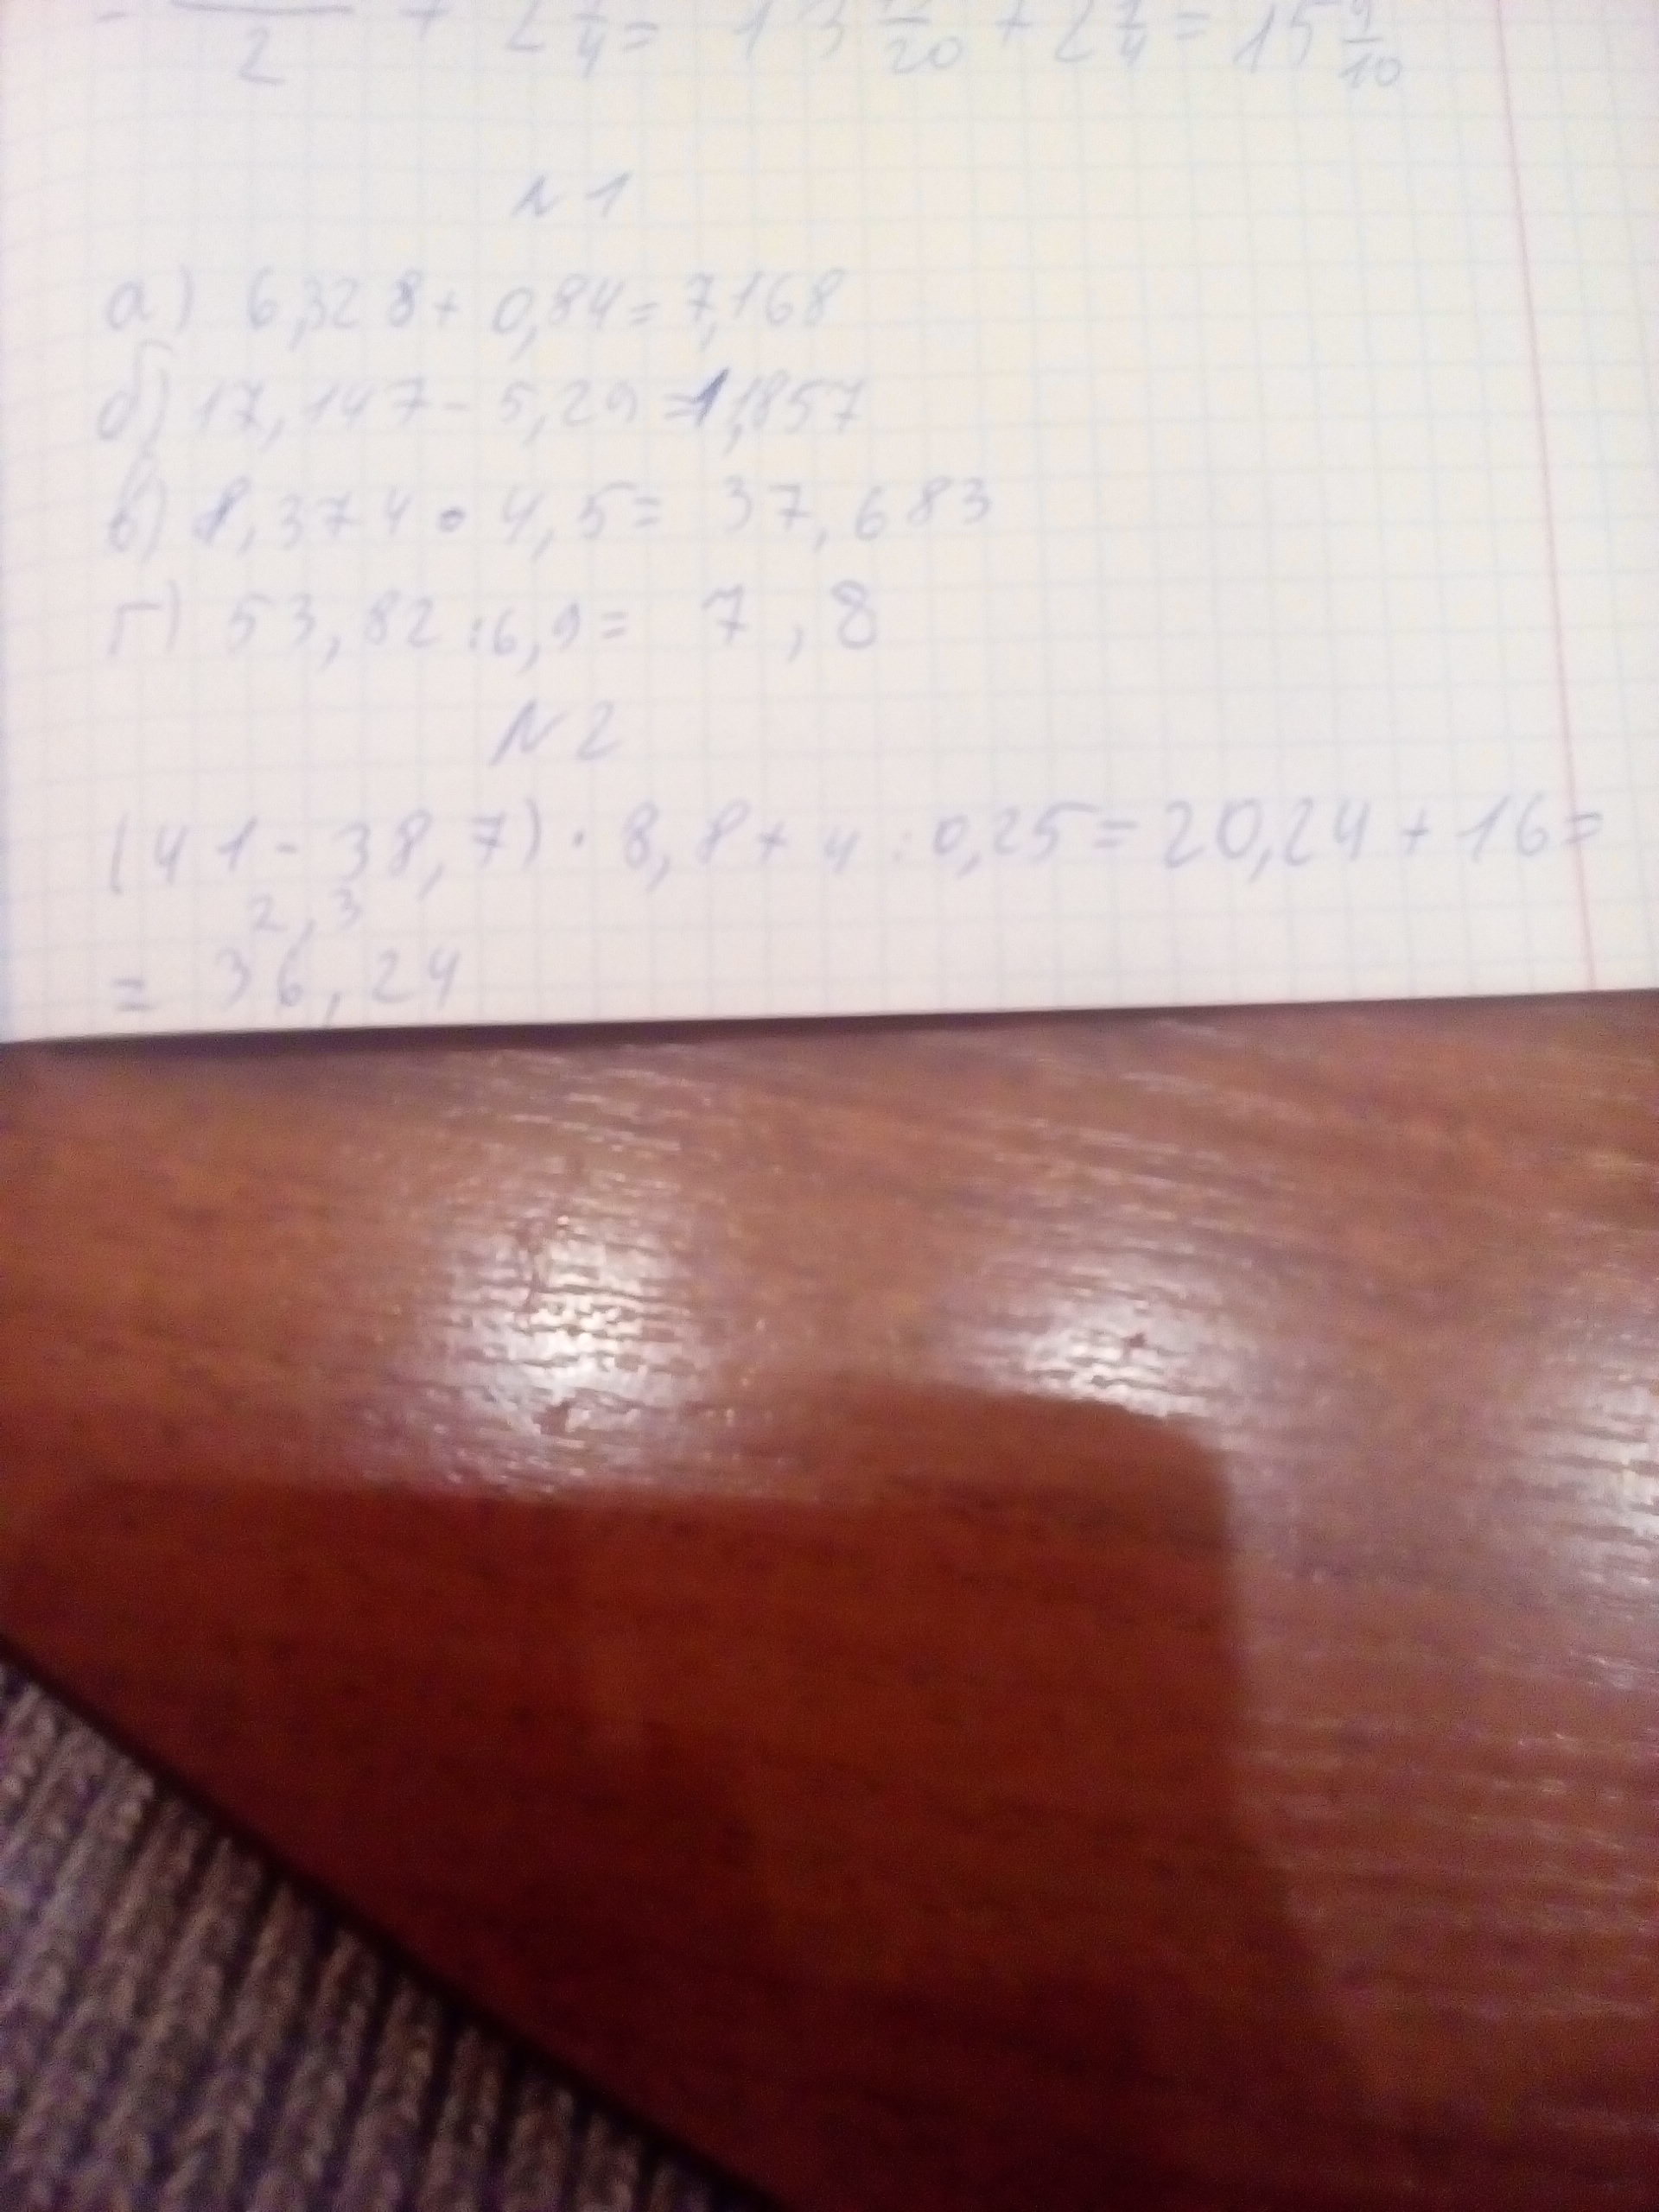 2 + 2 7/4 = 13 /20 + 2 7/4 = 15 9/10
N 1
а) 6,328 + 0,84 = 7,168
б) 17,147 - 5,29 = 1,857
в) 8,374 • 4,5 = 37,683
г) 53,82 : 6,9 = 7,8
N 2
(41 - 38,7) · 8,8 + 4 : 0,25 = 20,24 + 16 =
2,3
= 36,24